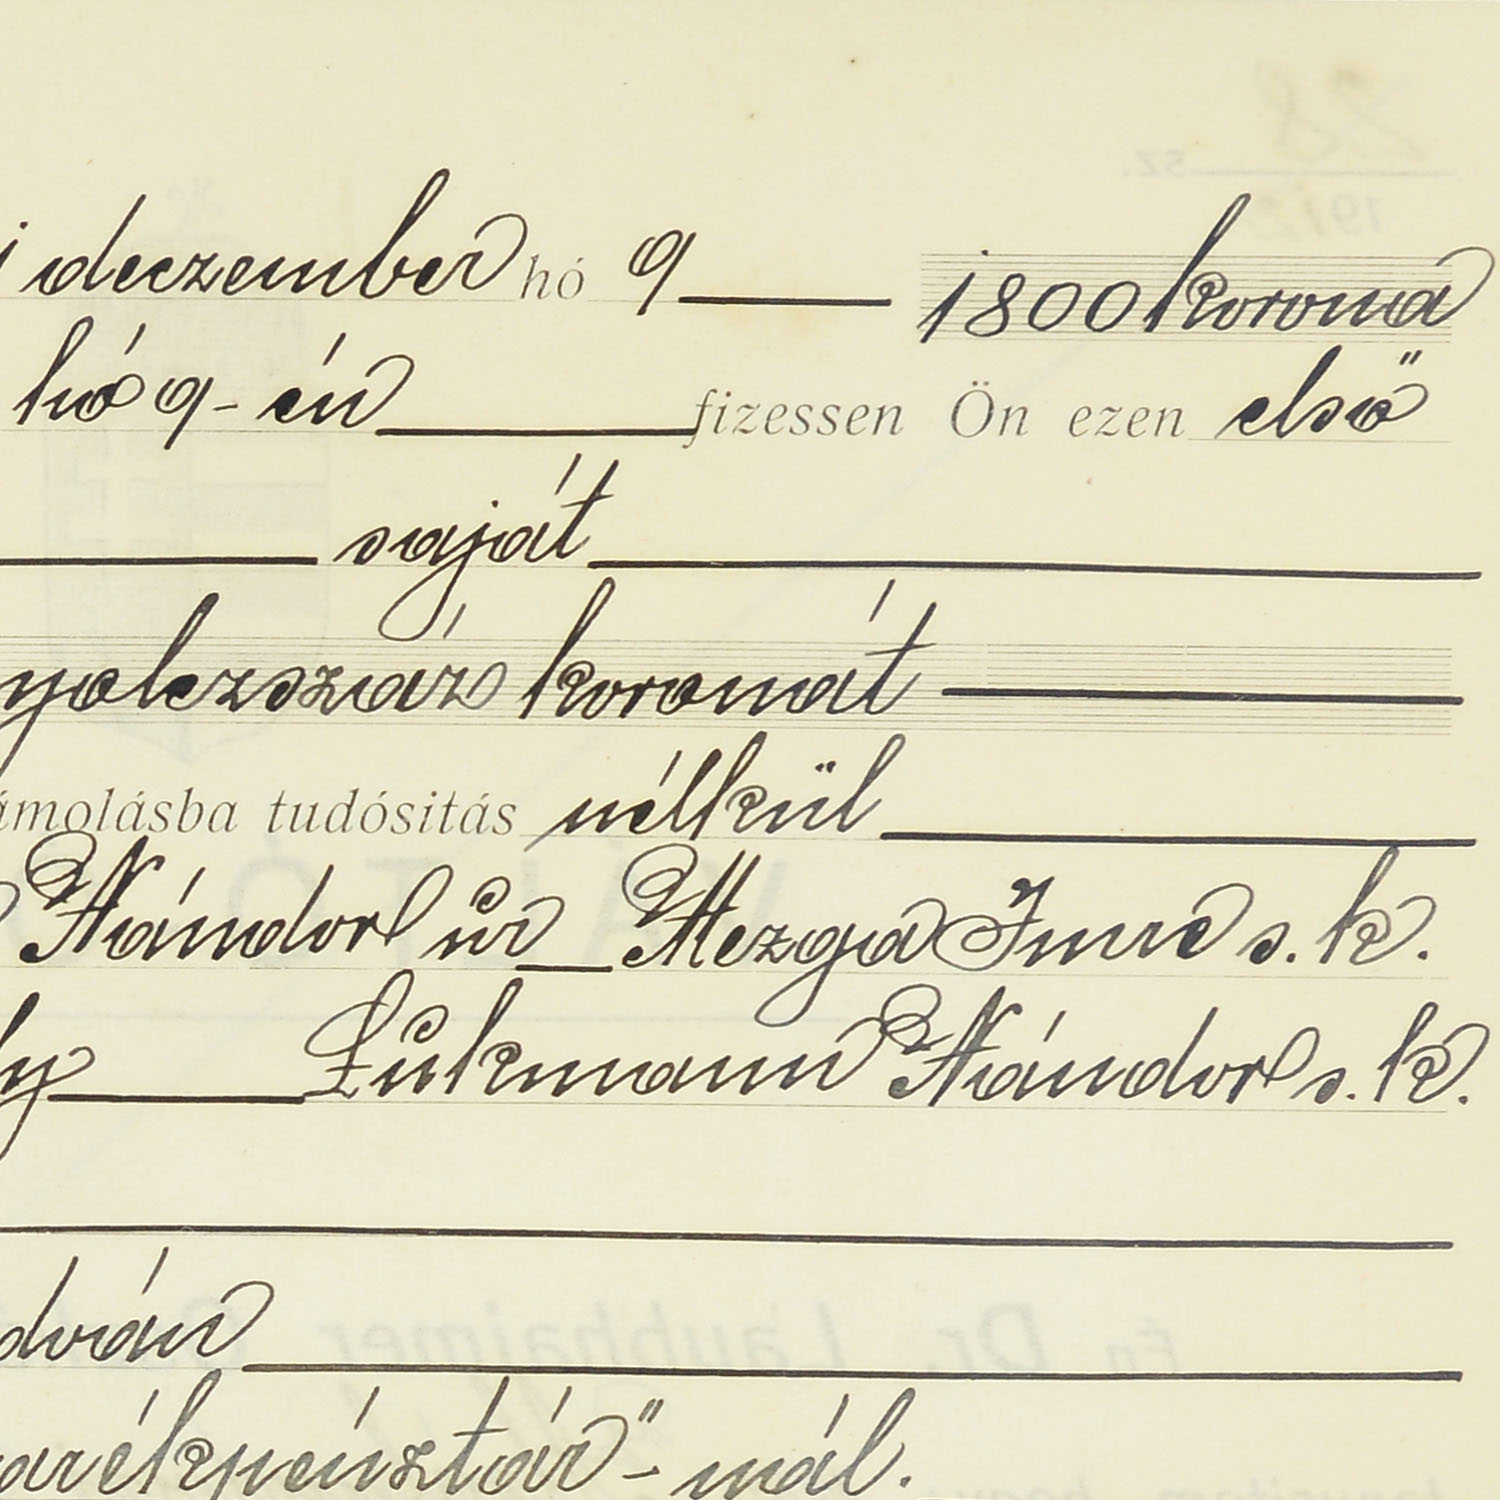 i deczember hó 9 1800 korona
hó 9-én fizessen Ön ezen első
saját
nyolczszáz koronát
ámolásba tudósitás nélkül
Nándor úr Mezga Imre s.k.
ly Lukmann Nándor s.k.
dván
arékpénztár"-nál.